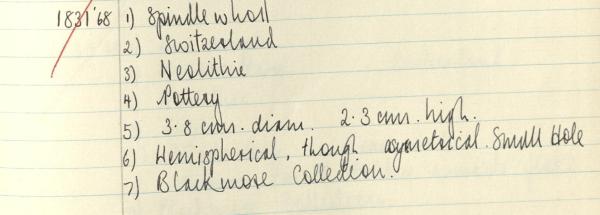 1831'68 1) Spindle whorl
2) Switzerland
3) Neolithic
4) Pottery
5) 3.8 cms. diam. 2.3 cms. high.
6) Hemispherical, though asymetrical. Small Hole
7) Blackmore Collection.